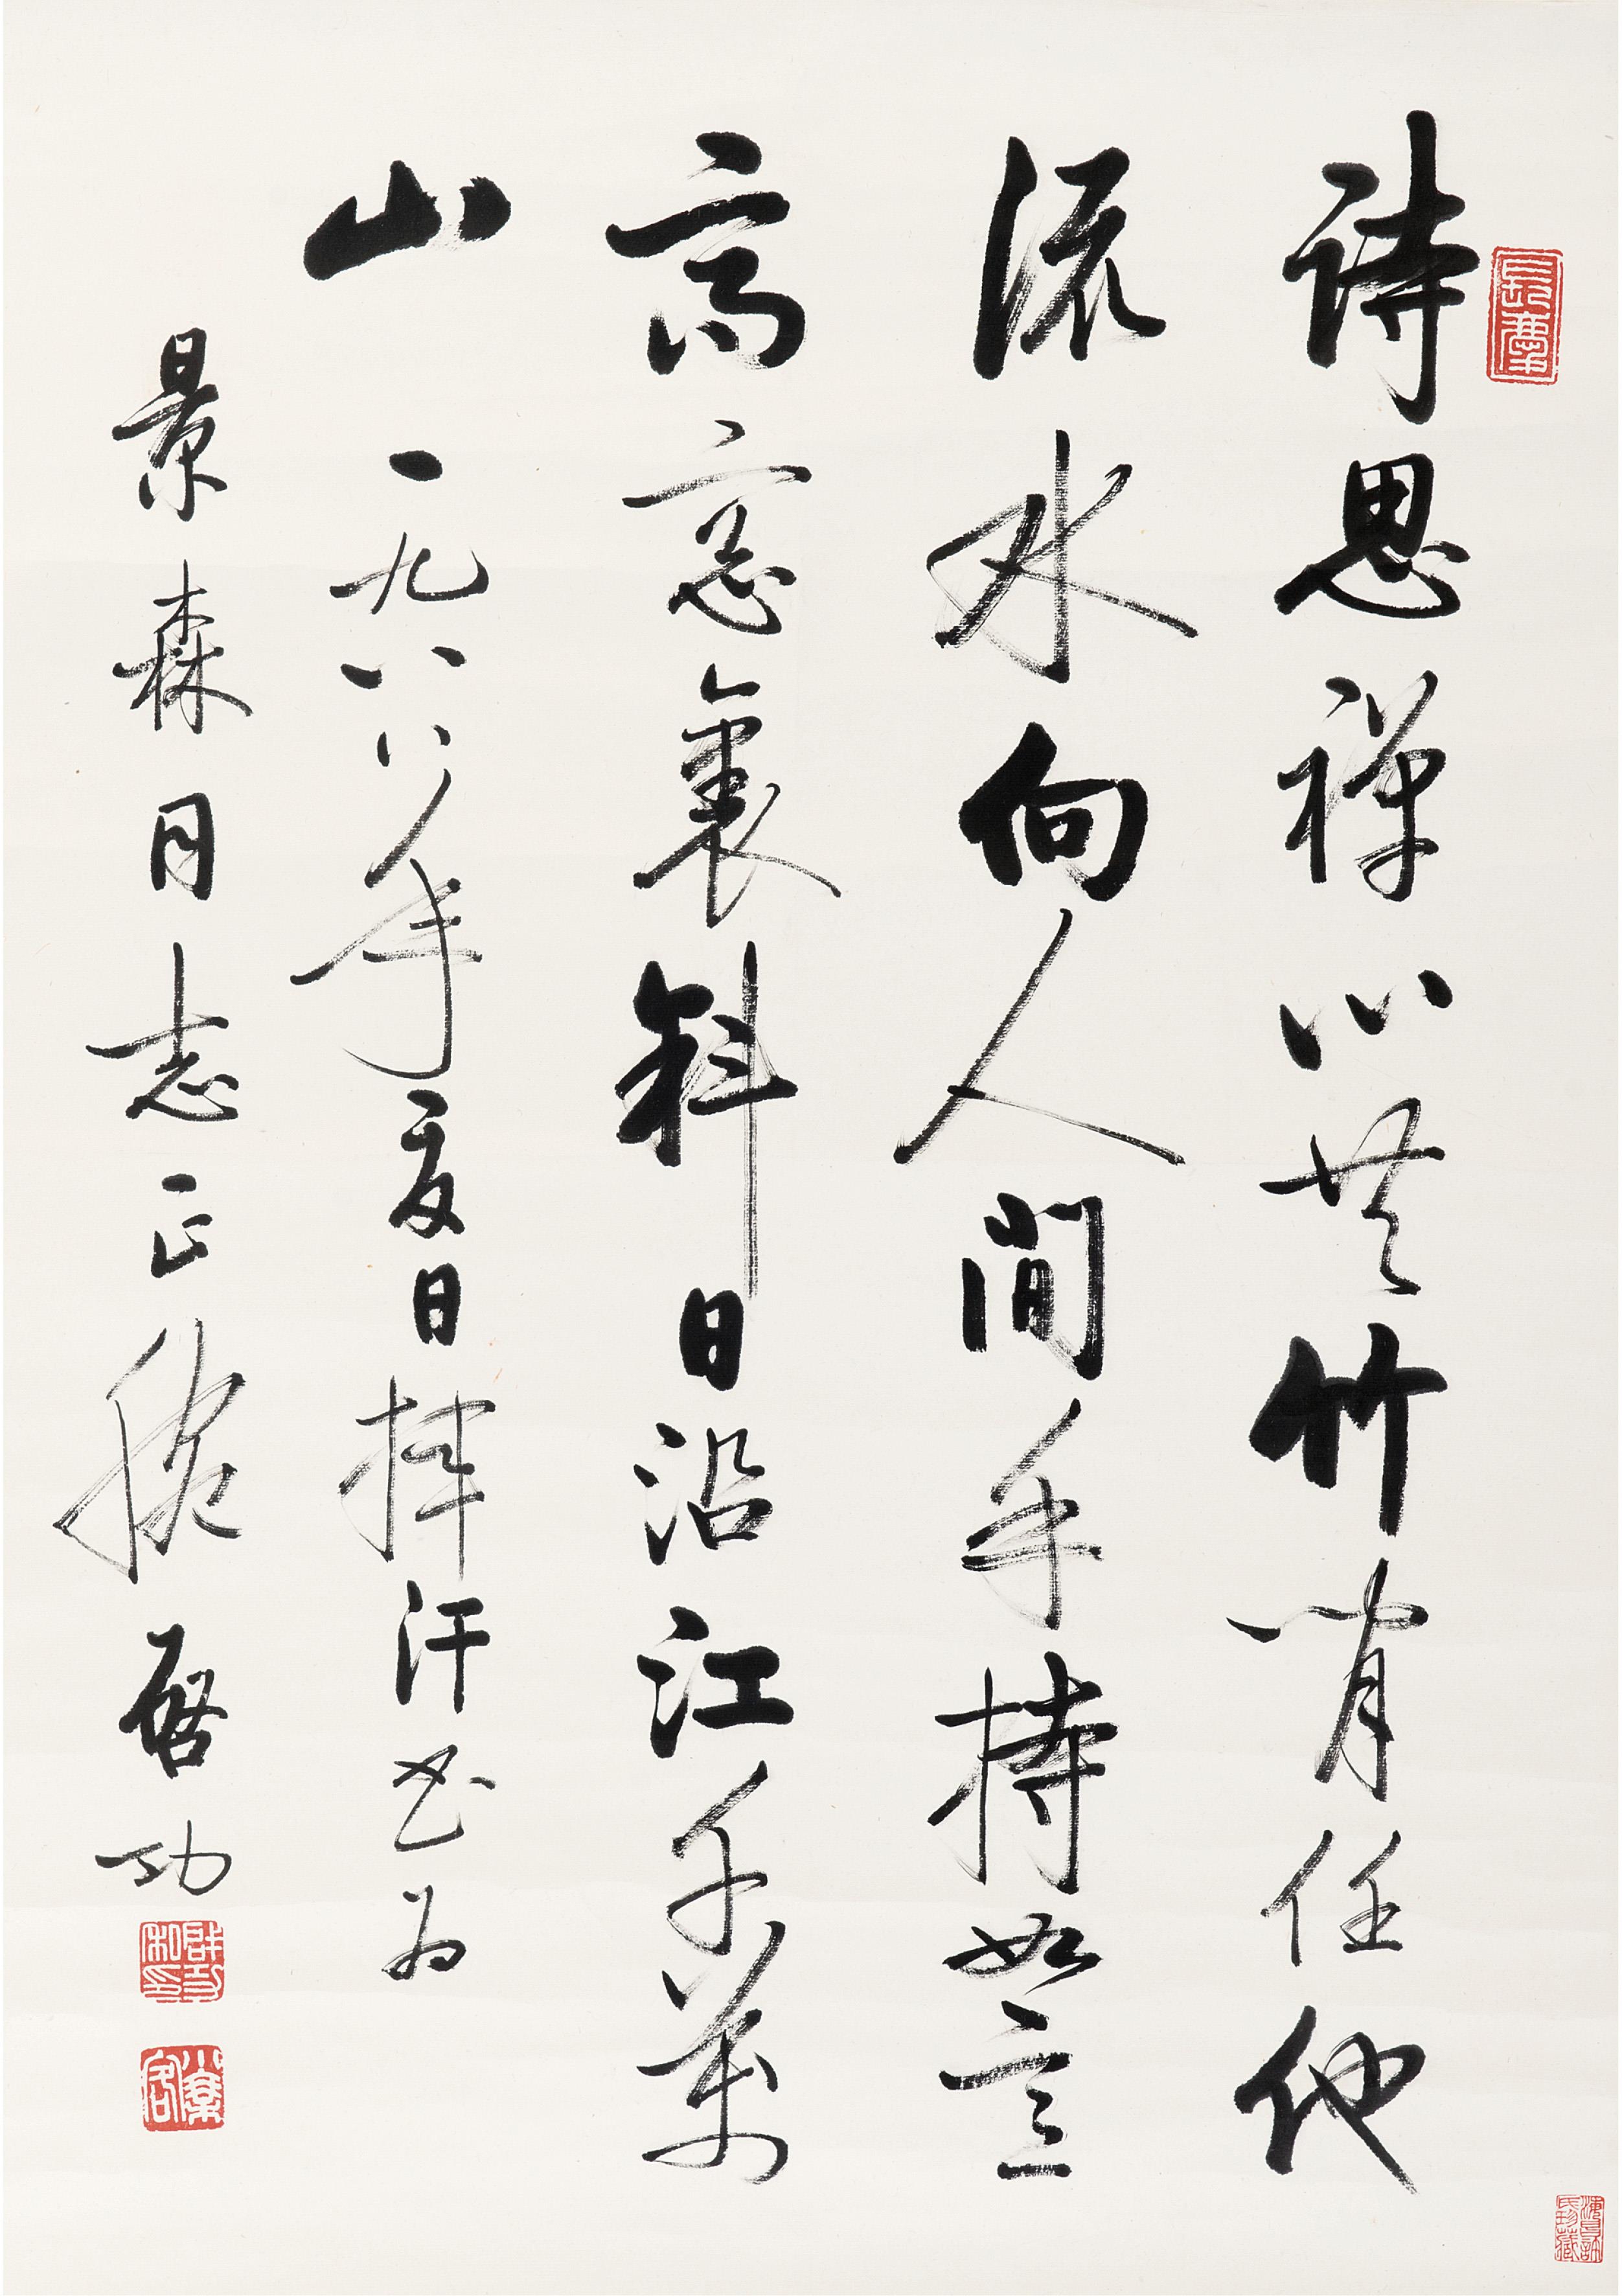 詩思禪心共竹閒任他
流水向人間手持如意
高窓裏斜日沿江千萬
山 一九八八年夏日揮汗书为
景森同志正腕 啓功
啟功私印